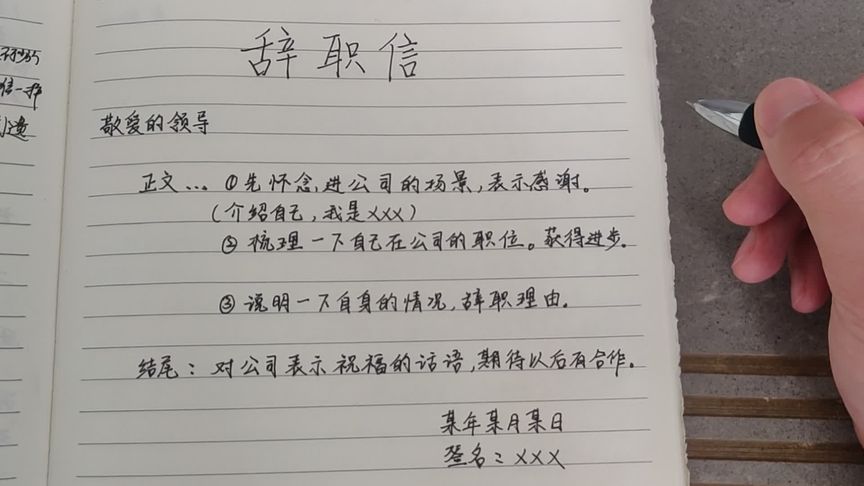 辞职信
敬爱的领导
正文... ①先怀念进公司的场景,表示感谢。
(介绍自己,我是XXX)
② 梳理一下自己在公司的职位。获得进步.
③ 说明一下自身的情况,辞职理由.
结尾: 对公司表示祝福的话语,期待以后有合作。
某年某月某日
签名: XXX